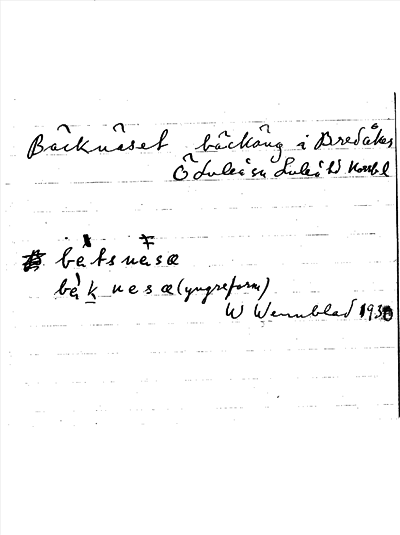 Bäcknäset bäckäng i Bredåker
Ö Luleå sn Luleå td Norrb l
båtsnäsæ
båk nesæ (yngre form)
W Wennblad 1930